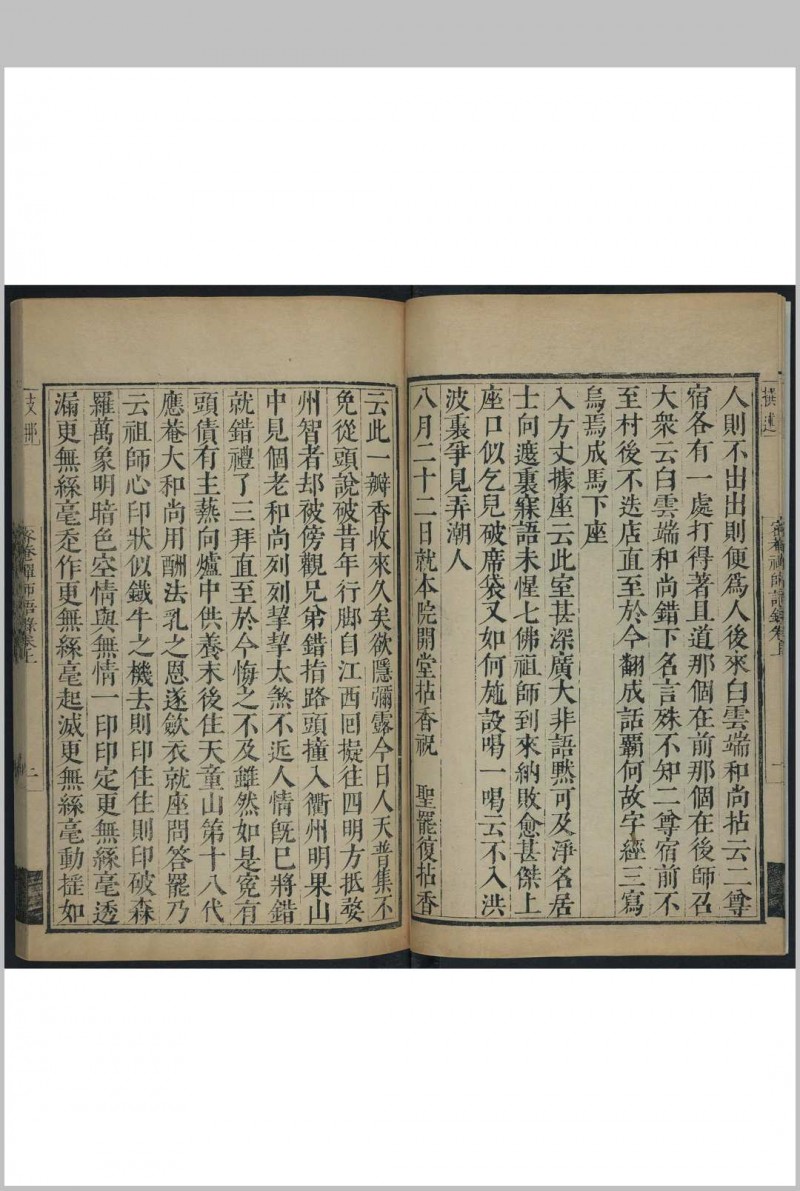 人則不出出則便爲人後來白雲端和尚拈云二尊
宿各有一處打得著且道那個在前那個在後師召
大衆云白雲端和尚錯下名言殊不知二尊宿前不
至村後不迭店直至於今翻成話霸何故字經三寫
烏焉成馬下座
入方丈據座云此室甚深廣大非語默可及淨名居
士向遮裏寐語未惺七佛祖師到來納敗愈甚傑上
座口似乞兒破席袋又如何施設喝一喝云不入洪
波裏爭見弄潮人
八月二十二日就本院開堂拈香祝 聖罷復拈香
云此一瓣香收來久矣欲隱彌露今日人天普集不
免從頭說破昔年行脚自江西回擬往四明方抵婺
州智者却被傍觀兄弟錯指路頭撞入衢州明果山
中見個老和尚列列挈挈太煞不近人情旣已將錯
就錯禮了三拜直至於今悔之不及雖然如是寃有
頭債有主爇向爐中供養末後住天童山第十八代
應菴大和尚用酬法乳之恩遂歛衣就座問答罷乃
云祖師心印狀似鐵牛之機去則印住住則印破森
羅萬象明暗色空情與無情一印印定更無絲毫透
漏更無絲毫造作更無絲毫起滅更無絲毫動搖如
支那
密菴禪師語錄卷上
二